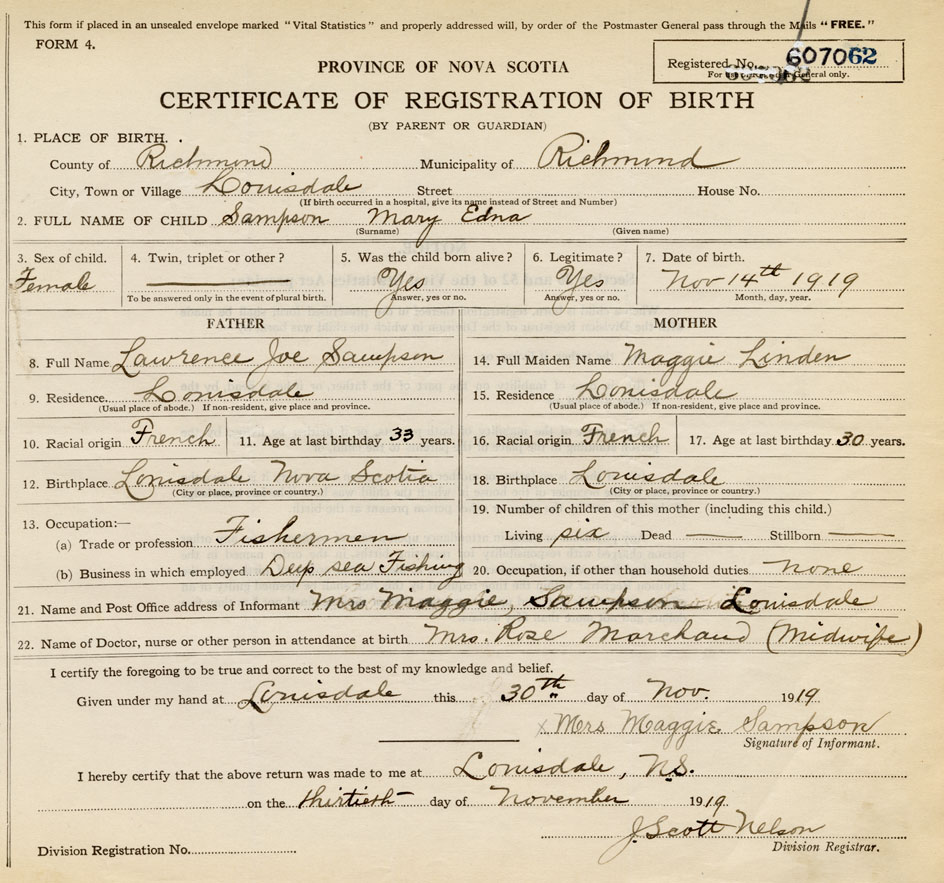 This form if placed in an unsealed envelope marked "Vital Statistics" and properly addressed will, by order of the Postmaster General pass through the Mails "FREE."
FORM 4.
Registered No. 607062
For use of Registrar General only.
PROVINCE OF NOVA SCOTIA
CERTIFICATE OF REGISTRATION OF BIRTH
(BY PARENT OR GUARDIAN)
1. PLACE OF BIRTH.
County of Richmond Municipality of Richmond
City, Town or Village Louisdale Street House No.
(If birth occurred in a hospital, give its name instead of Street and Number)
2. FULL NAME OF CHILD Sampson Mary Edna
(Surname) (Given name)
3. Sex of child. 4. Twin, triplet or other? 5. Was the child born alive? 6. Legitimate? 7. Date of birth.
Female Yes Yes Nov 14th 1919
To be answered only in the event of plural birth. Answer, yes or no. Answer, yes or no. Month, day, year.
FATHER MOTHER
8. Full Name Lawrence Joe Sampson 14. Full Maiden Name Maggie Linden
9. Residence. Louisdale 15. Residence Louisdale
(Usual place of abode.) If non-resident, give place and province. (Usual place of abode.) If non-resident, give place and province.
10. Racial origin French 11. Age at last birthday 33 years. 16. Racial origin French 17. Age at last birthday 30 years.
12. Birthplace Louisdale Nova Scotia 18. Birthplace Louisdale
(City or place, province or country.) (City or place, province or country.)
13. Occupation:— 19. Number of children of this mother (including this child.)
(a) Trade or profession Fishermen Living six Dead — Stillborn —
(b) Business in which employed Deep sea Fishing 20. Occupation, if other than household duties. none
21. Name and Post Office address of Informant Mrs Maggie, Sampson Louisdale
22. Name of Doctor, nurse or other person in attendance at birth Mrs. Rose Marchand (Midwife)
I certify the foregoing to be true and correct to the best of my knowledge and belief.
Given under my hand at Louisdale this 30th day of Nov. 1919
x Mrs Maggie Sampson
Signature of Informant.
I hereby certify that the above return was made to me at Louisdale, N.S.
on the thirtieth day of November 1919.
J. Scott Nelson
Division Registration No. Division Registrar.